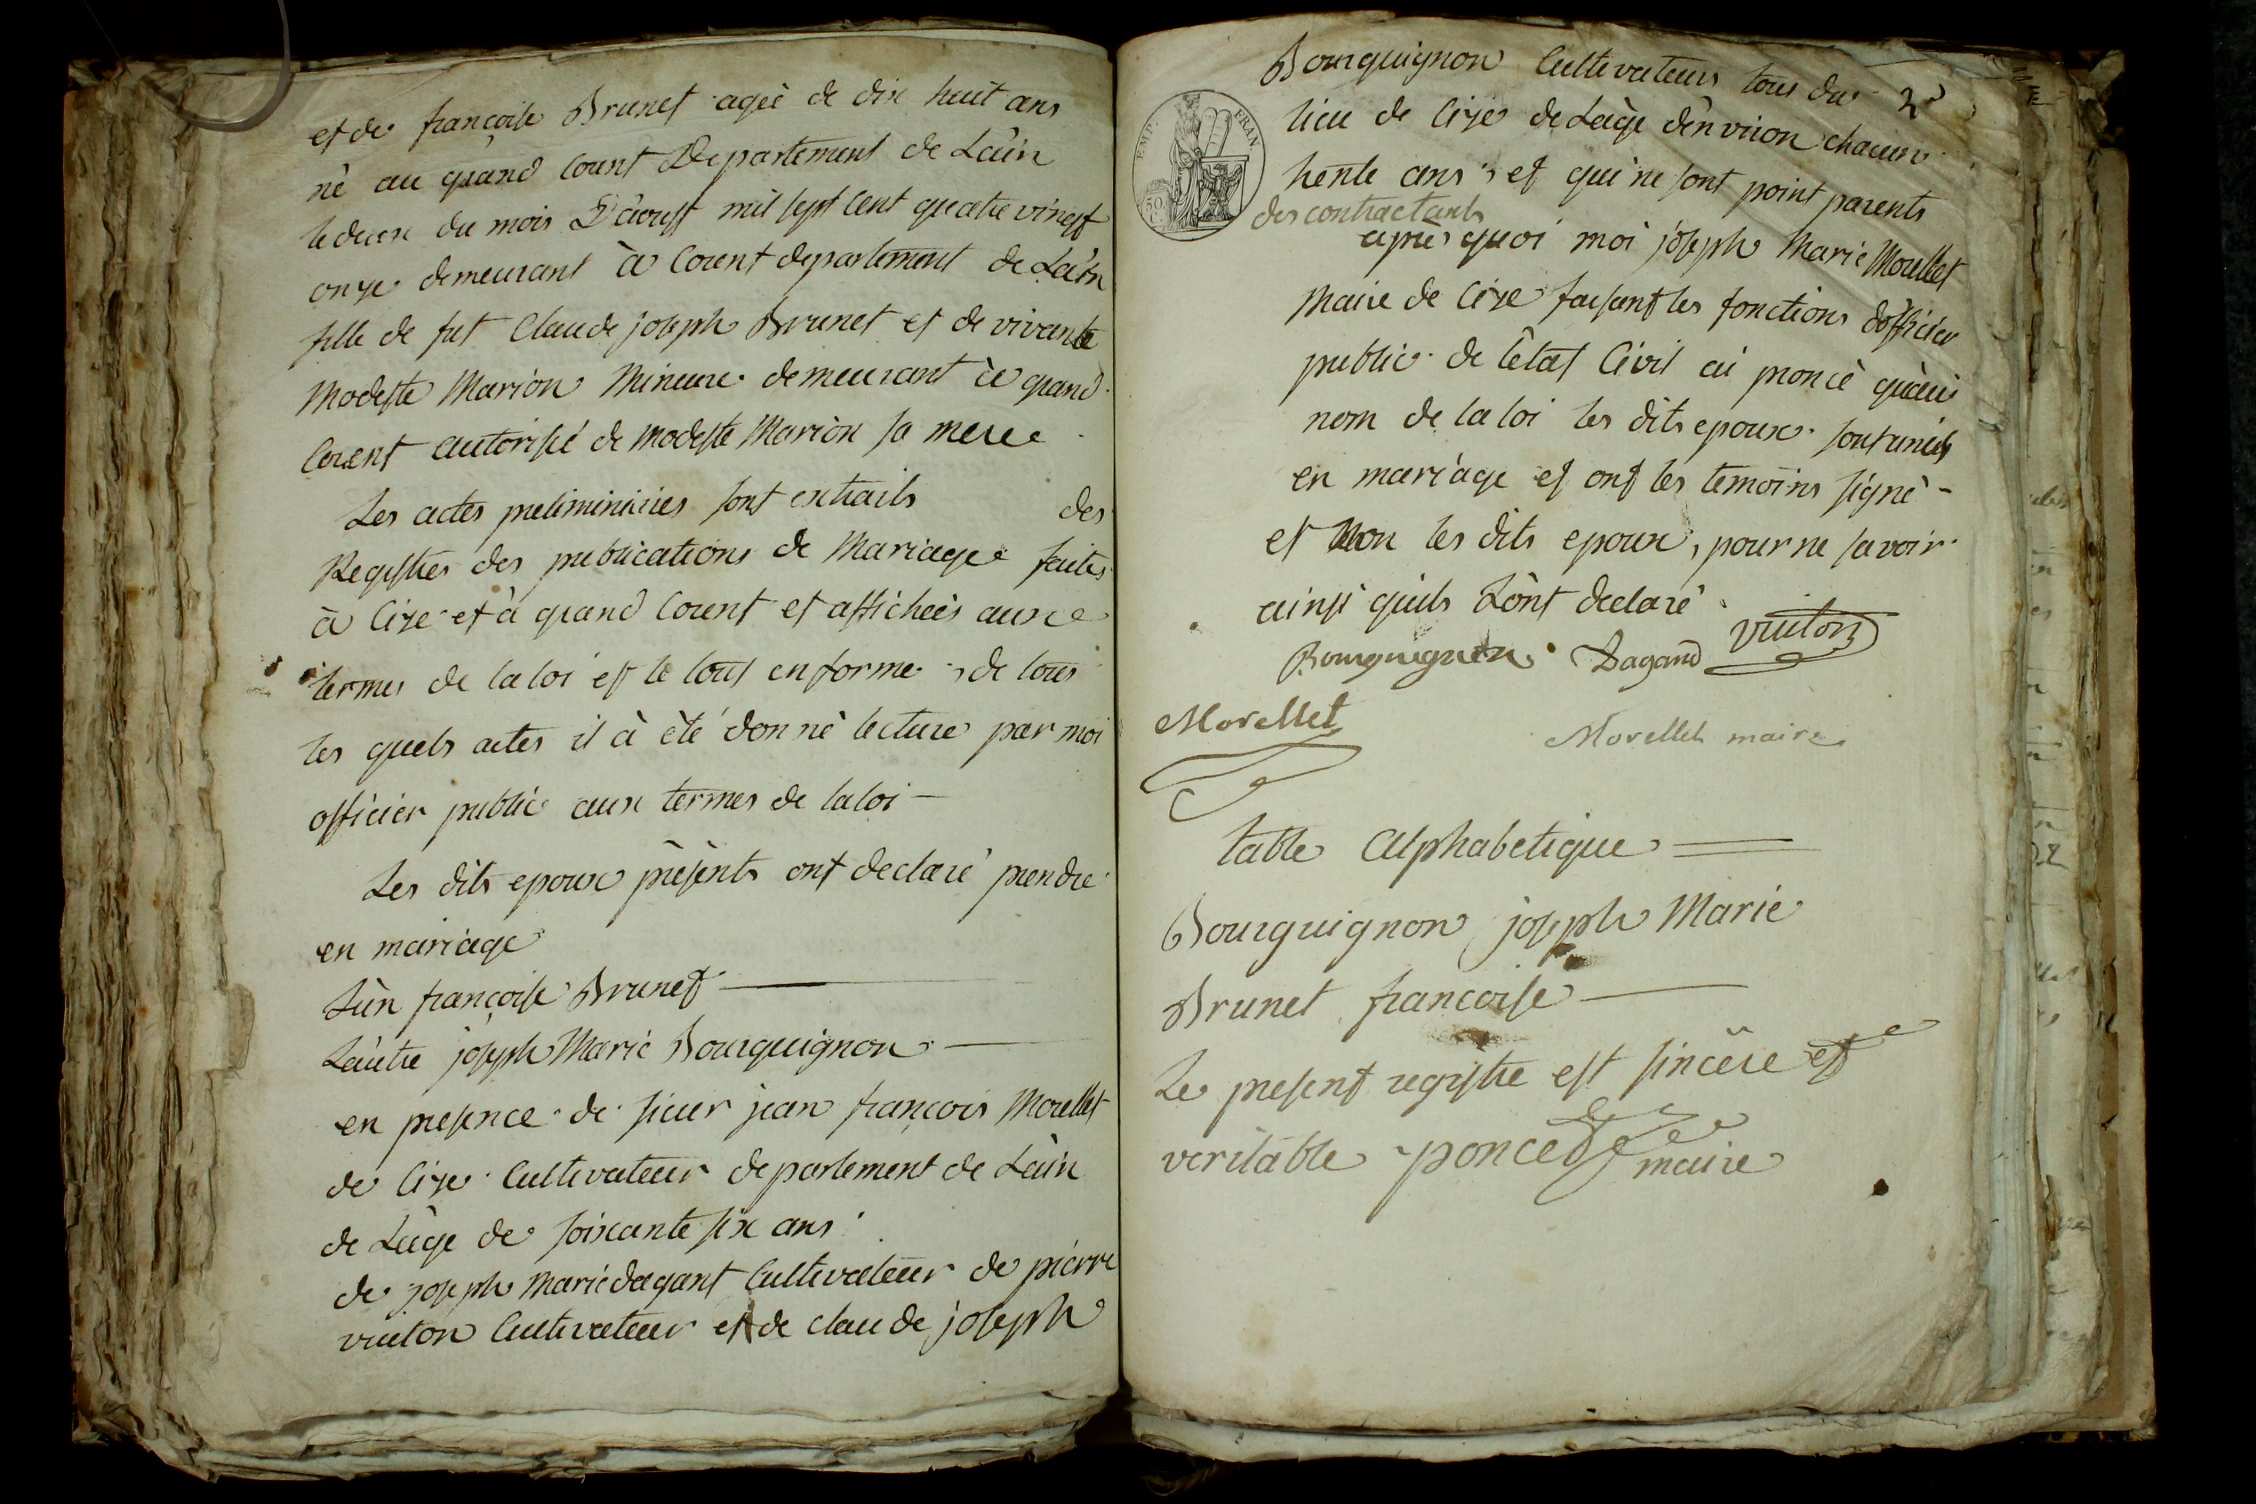 et de françoise Brunet agée de dix huit ans
né au grand Corent Departement de Lain
le deux du mois D'aoust mil sept cent quatre vingt
onze demeurant à Corent departement de Lain
fille de fut Claude joseph Brunet et de vivante
Modeste Marion Mineure demeurant à grand
Corent autorisé de Modeste Marion sa mere
Les actes preliminaires sont extraits des
Registres des publications de Mariage faites
à Cize et à grand Corent et affichées aux
termes de la loi et le tout en forme, de tous
les quels actes il à été donné lecture par moi
officier public aux termes de la loi —
Les dits epoux présents ont declaré prendre
en mariage
Lùn françoise Brunet —
Làutre joseph Marie Bourguignon —
en presence de sieur jean françois Morellet
de Cize Cultivateur departement de Làin
de Làge de soixante six ans
de joseph Marie dagant Cultivateur de pierre
vuiton Cultivateur et de claude joseph
2
Bourguignon Cultivateurs tous du
lieu de Cize de Làge dènviron chacun
trente ans, et qui ne sont point parents
des contractants
EMP. FRAN.
50
après quoi moi joseph Marie Morellet
Maire de Cize faisant les fonctions dòfficier
public de lètat Civil ai proncé quàu
nom de la loi les dits epoux sont unis
en mariage et ont les temoins signé -
et Non les dits epoux, pour ne savoir
ainsi quils Lònt declaré
Bourguignon Dagand vuiton
Morellet
Morellet maire
table Alphabetique
Bourguignon joseph Marie
Brunet francoise —
Le present registre est sincère et
veritable poncet maire